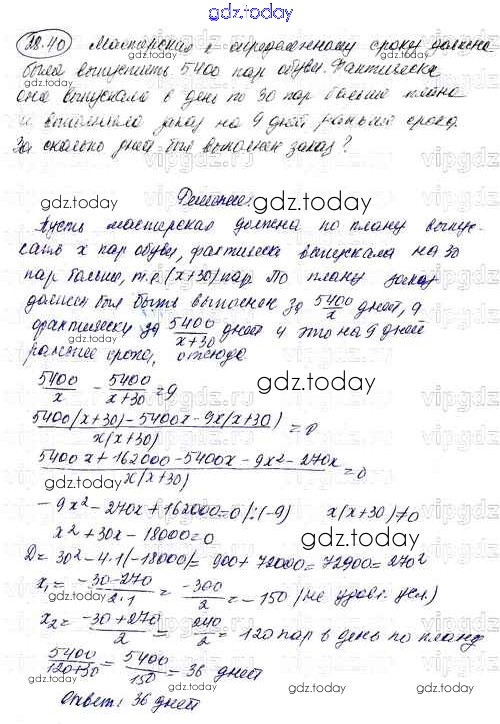 gdz.today
28.40 Мастерская к определенному сроку должна
была выпустить 5400 пар обуви. Фактически
она выпускала в день по 30 пар больше плана
и выполнила заказ на 9 дней раньше срока.
За сколько дней был выполнен заказ?
Решение:
Пусть мастерская должна по плану выпус-
кать x пар обуви, фактически выпускала на 30
пар больше, т.е. (x+30) пар. По плану заказ
должен был быть выполнен за 5400/x дней, а
фактически за 5400/(x+30) дней и это на 9 дней
раньше срока, отсюда
5400/x - 5400/(x+30) = 9
(5400(x+30) - 5400x - 9x(x+30))/(x(x+30)) = 0
(5400x + 162000 - 5400x - 9x² - 270x)/(x(x+30)) = 0
-9x² - 270x + 162000 = 0 /:(-9) x(x+30)≠0
x² + 30x - 18000 = 0
D = 30² - 4·1·(-18000) = 900 + 72000 = 72900 = 270²
x₁ = (-30-270)/(2·1) = -300/2 = -150 (не удовл. усл.)
x₂ = (-30+270)/2 = 240/2 = 120 пар в день по плану
5400/(120+30) = 5400/150 = 36 дней
Ответ: 36 дней
gdz.today